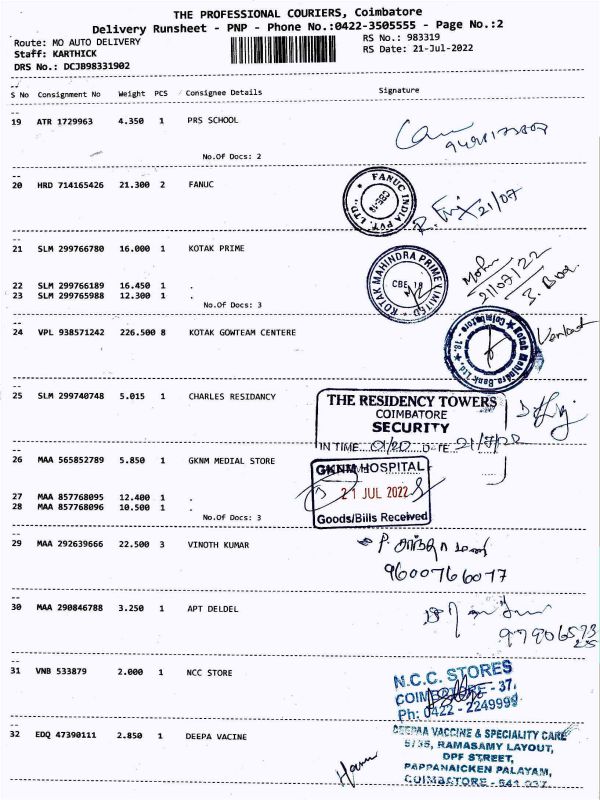 THE PROFESSIONAL COURIERS, Coimbatore
Delivery Runsheet - PNP - Phone No.:0422-3505555 - Page No.:2
Route: MO AUTO DELIVERY
RS No.: 983319
Staff: KARTHICK
RS Date: 21-Jul-2022
DRS No.: DCJB98331902
S No Consignment No Weight PCS Consignee Details Signature
19 ATR 1729963 4.350 1 PRS SCHOOL
No.Of Docs: 2
20 HRD 714165426 21.300 2 FANUC
FANUC INDIA PVT. LTD.
21/07
21 SLM 299766780 16.000 1 KOTAK PRIME
KOTAK MAHINDRA PRIME LIMITED
CBE 18
21/07/22
22 SLM 299766189 16.450 1 .
23 SLM 299765988 12.300 1 .
No.Of Docs: 3
24 VPL 938571242 226.500 8 KOTAK GOWTEAM CENTERE
Kotak Mahindra Bank Ltd. Coimbatore - 18.
Venkat
25 SLM 299740748 5.015 1 CHARLES RESIDANCY
THE RESIDENCY TOWERS
COIMBATORE
SECURITY
IN TIME DATE
26 MAA 565852789 5.850 1 GKNM MEDIAL STORE
GKNM HOSPITAL
21 JUL 2022
Goods/Bills Received
27 MAA 857768095 12.400 1 .
28 MAA 857768096 10.500 1 .
No.Of Docs: 3
29 MAA 292639666 22.500 3 VINOTH KUMAR
9600766077
30 MAA 290846788 3.250 1 APT DELDEL
31 VNB 533879 2.000 1 NCC STORE
N.C.C. STORES
COIMBATORE - 37.
Ph: 0422 - 2249999
32 EDQ 47390111 2.850 1 DEEPA VACINE
DEEPAA VACCINE & SPECIALITY CARE
5/35, RAMASAMY LAYOUT,
DPF STREET,
PAPPANAICKEN PALAYAM,
COIMBATORE - 641 037.